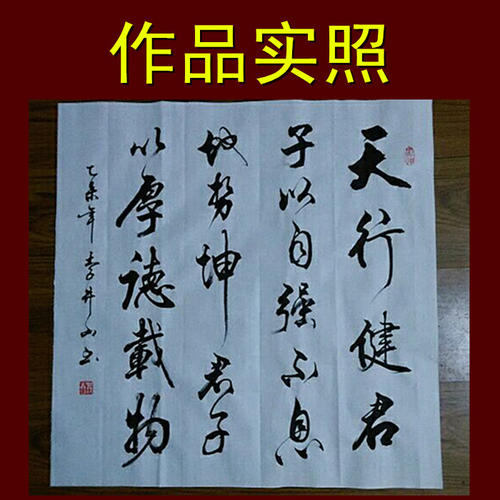 作品实照
天行健君
子以自强不息
地势坤君子
以厚德載物
乙未年李井山书